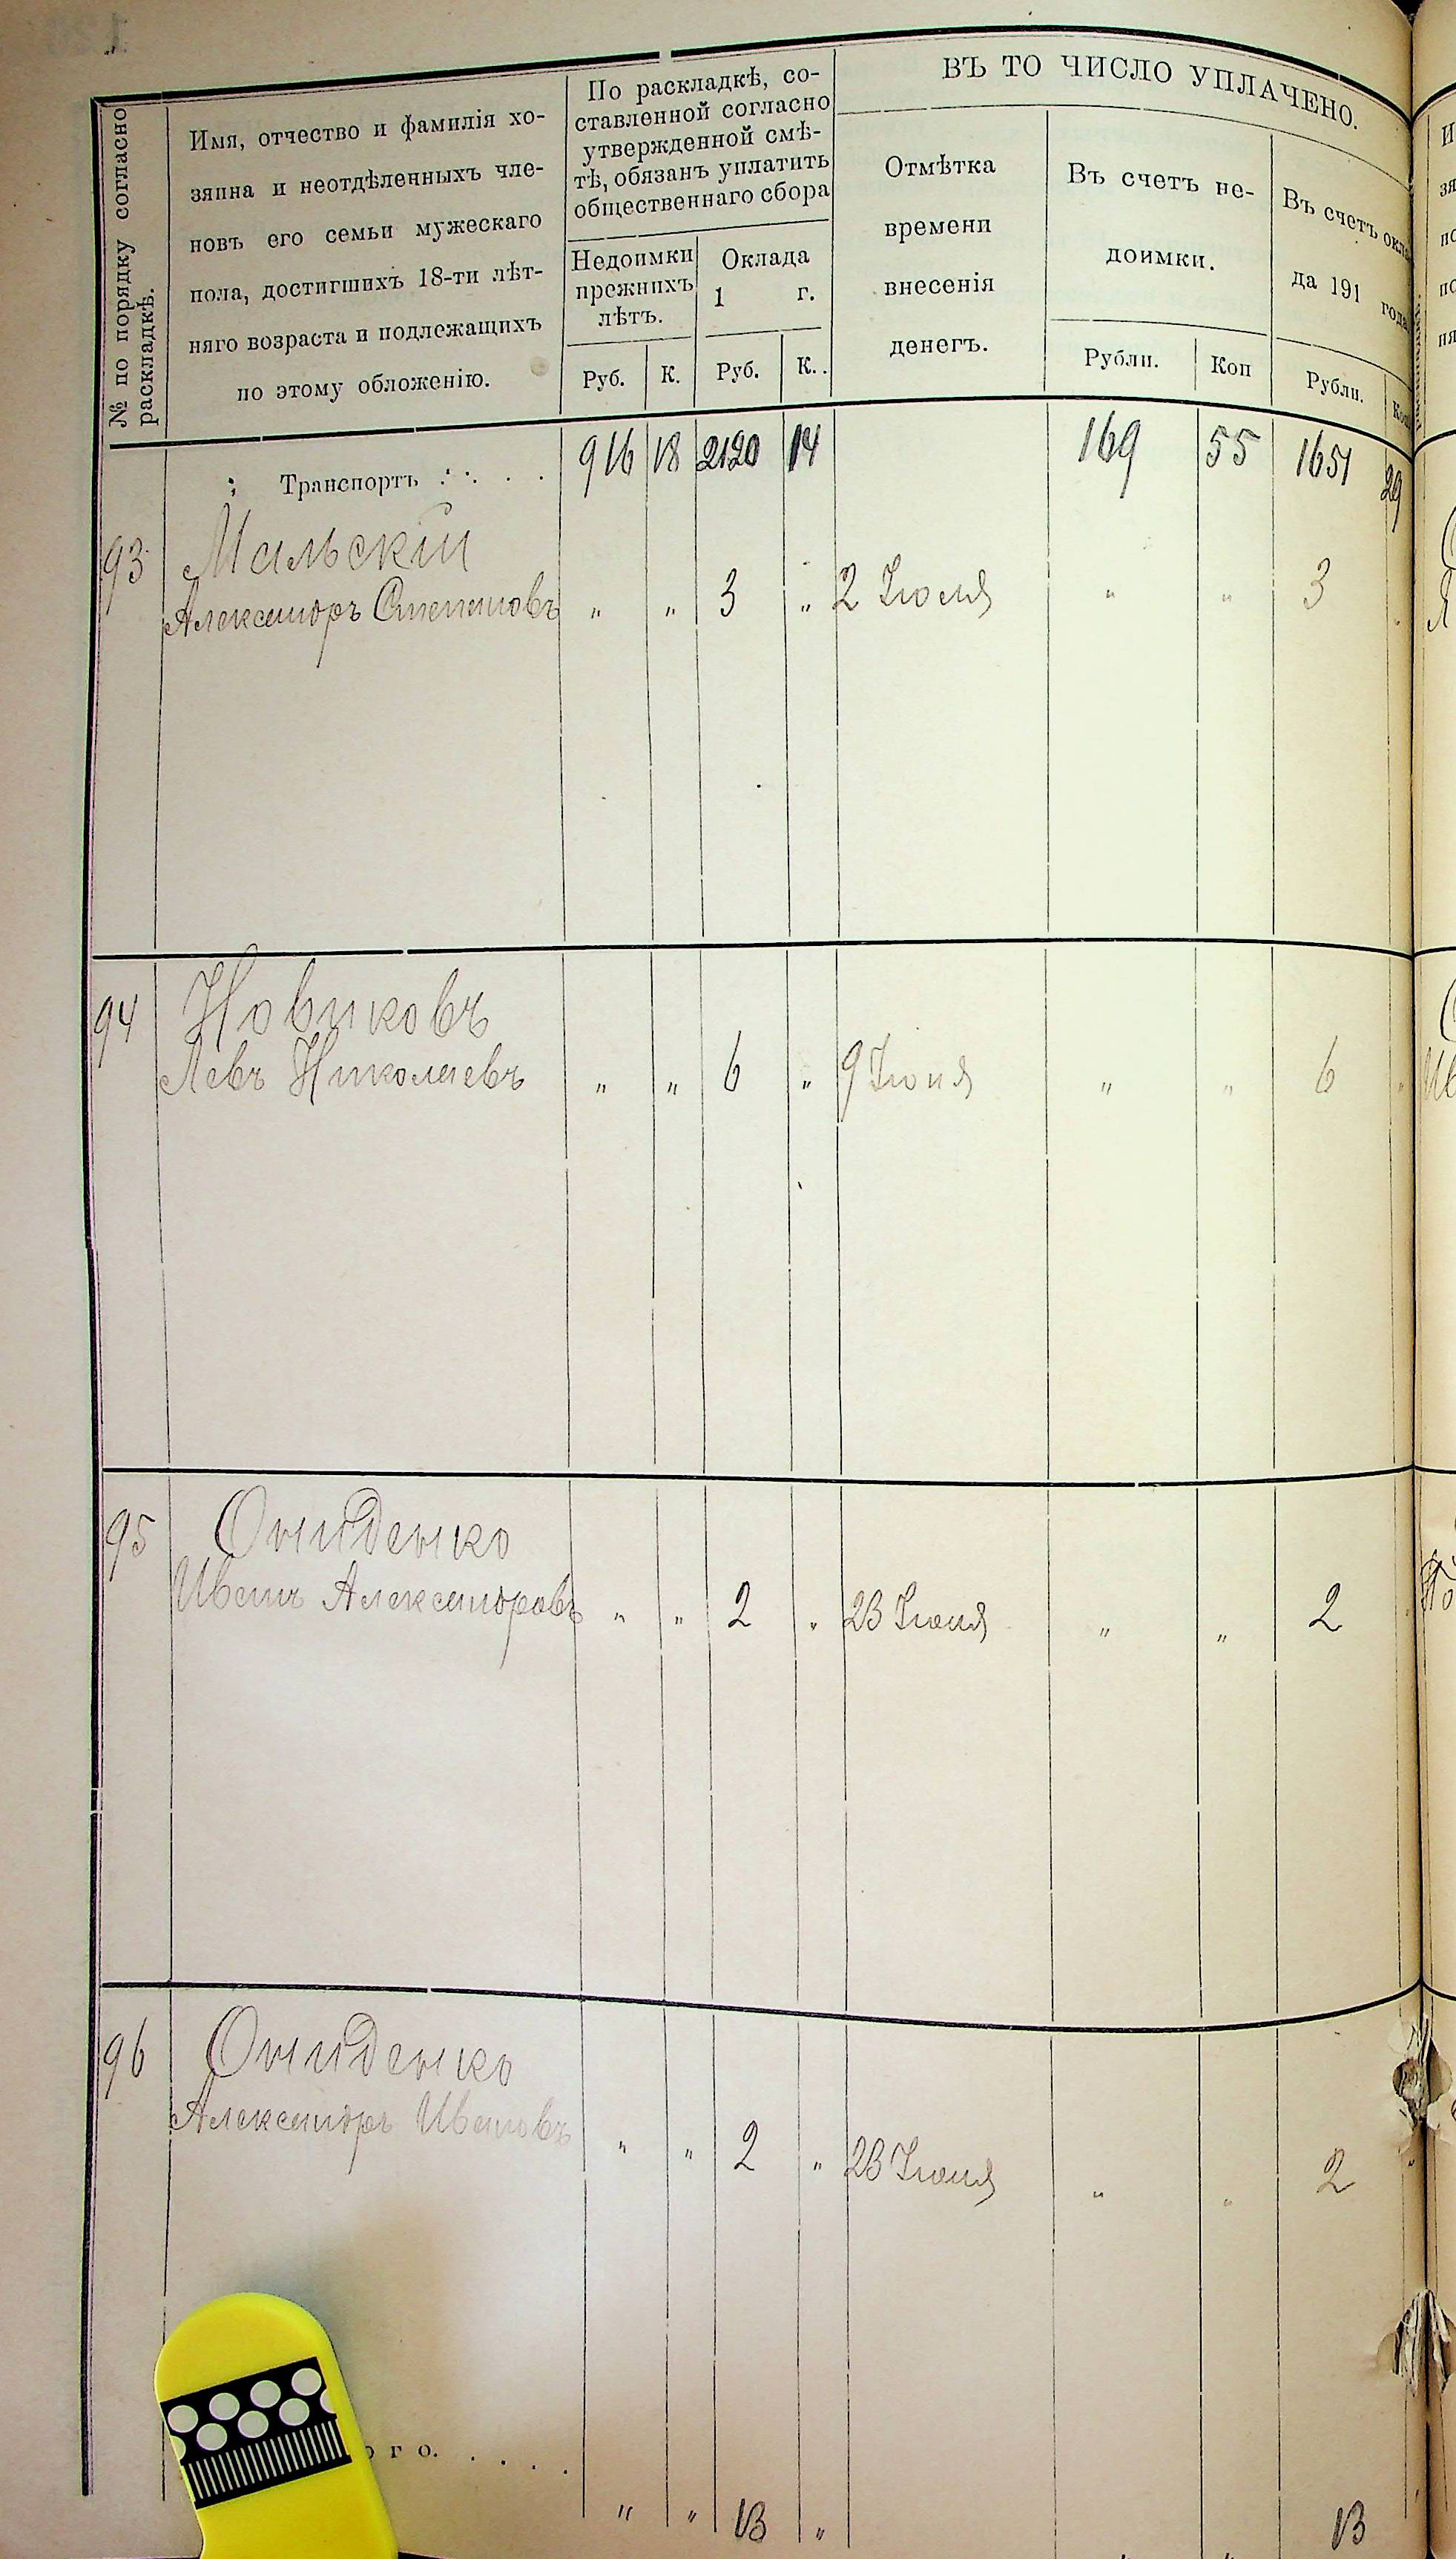 № по порядку согласно
раскладкѣ.
Имя, отчество и фамилія хо-
зяина и неотдѣленныхъ чле-
новъ его семьи мужескаго
пола, достигшихъ 18-ти лѣт-
няго возраста и подлежащихъ
по этому обложенію.
По раскладкѣ, со-
ставленной согласно
утвержденной смѣ-
тѣ, обязанъ уплатить
общественнаго сбора
Недоимки
прежнихъ
лѣтъ.
Оклада
1 г.
Руб. К. Руб. К.
ВЪ ТО ЧИСЛО УПЛАЧЕНО.
Отмѣтка
времени
внесенія
денегъ.
Въ счетъ не-
доимки.
Рубли. Коп
Въ счетъ окла
да 191 года
Рубли. Коп
Транспортъ . . . . 916 18 2120 14 169 55 1651 29
93 Мальскій
Александръ Степановъ " " 3 " 2 Іюля " " 3
94 Новиковъ
Левъ Николаевъ " " 6 " 9 Іюня " " 6 "
95 Ониденко
Иванъ Александровъ " " 2 " 23 Іюня " " 2
96 Ониденко
Александръ Ивановъ " " 2 " 23 Іюня " " 2 "
ого. . . . .
" " 13 " 13